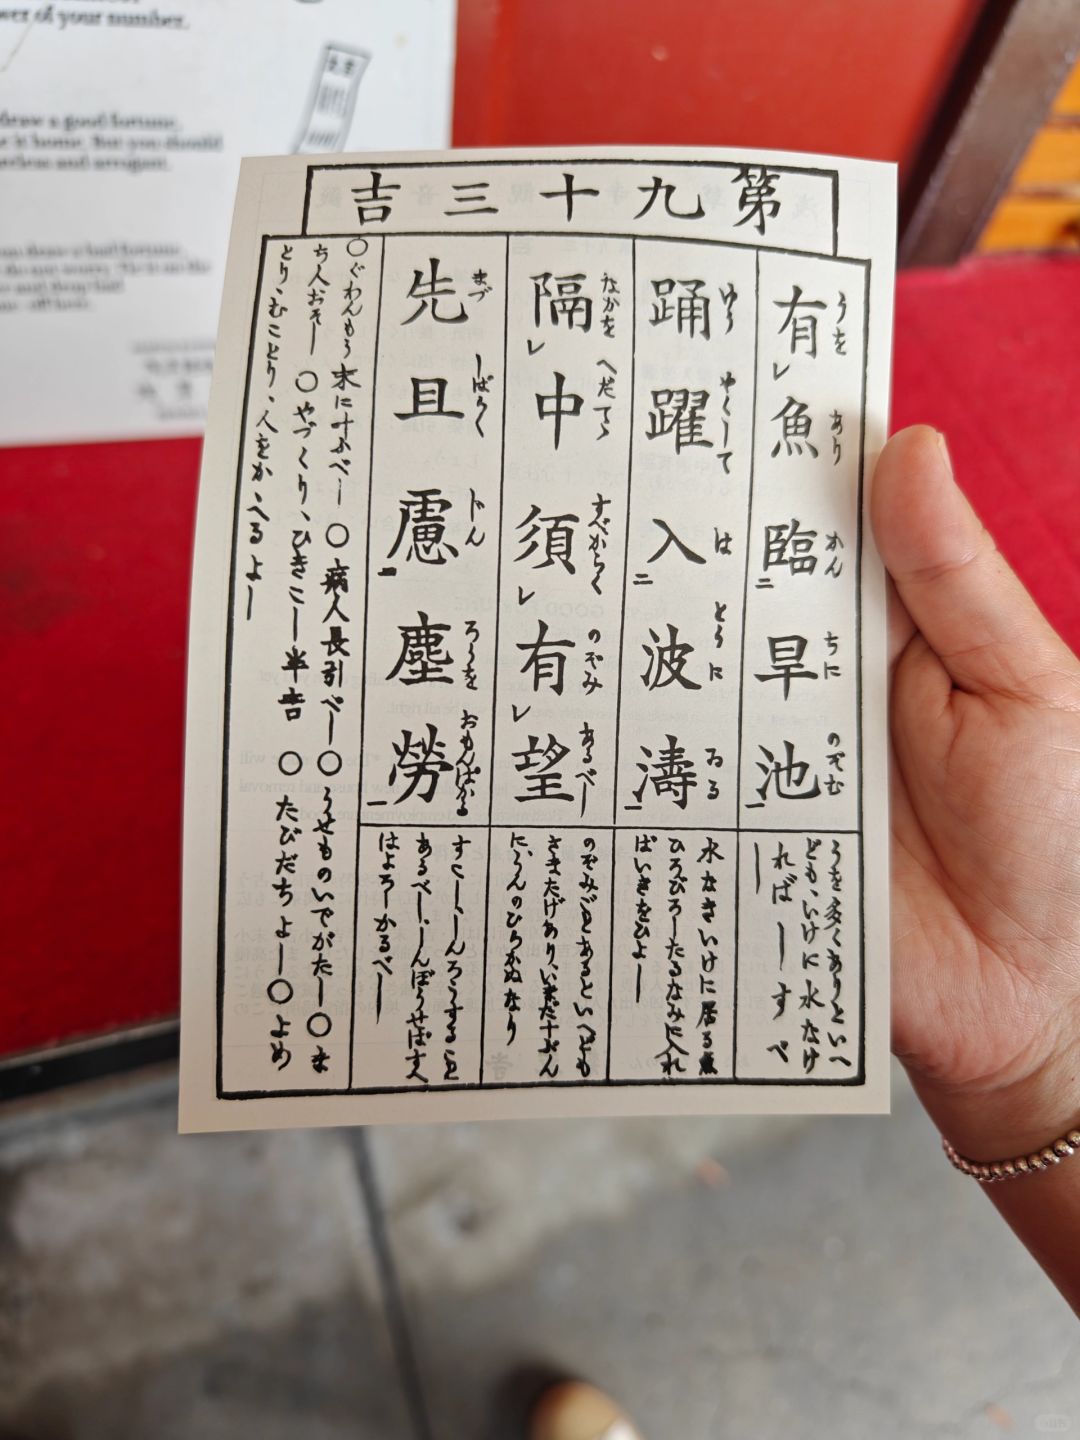 ower of your number.
draw a good fortune,
e it home. But you should
careless and arrogant.
you draw a bad fortune,
第九十三吉
有魚臨旱池
うを あり かん ちに のぞむ
うを多くありといへ
ども、いけに水なけ
ればしすべ
し
踊躍入波濤
ゆう やくして は とうに ゐる
水なきいけに居る魚
ひろびろしたるなみに入れ
ばいきをひよし
隔中須有望
なかを へだてゝ すべからく のぞみ あるべし
のぞみごとあるといへども
さまたげあり、いまだ十ぶん
に、うんのひらかぬなり
先且慮塵勞
まづ しばらく ぢん ろうを おもんぱかる
すこし、しんろうすること
あるべし、しんぼうせばすへ
はよろしかるべし
○ぐわんもう末に叶ふべし ○病人長引べし ○うせものいでがたし ○ま
ち人おそし ○やづくり、ひきこし半吉 ○たびだちよし ○よめ
とり、むことり、人をかゝへるよし